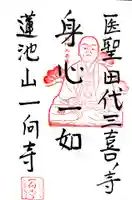 医聖田代三喜ノ寺
身心一如
蓮池山一向寺